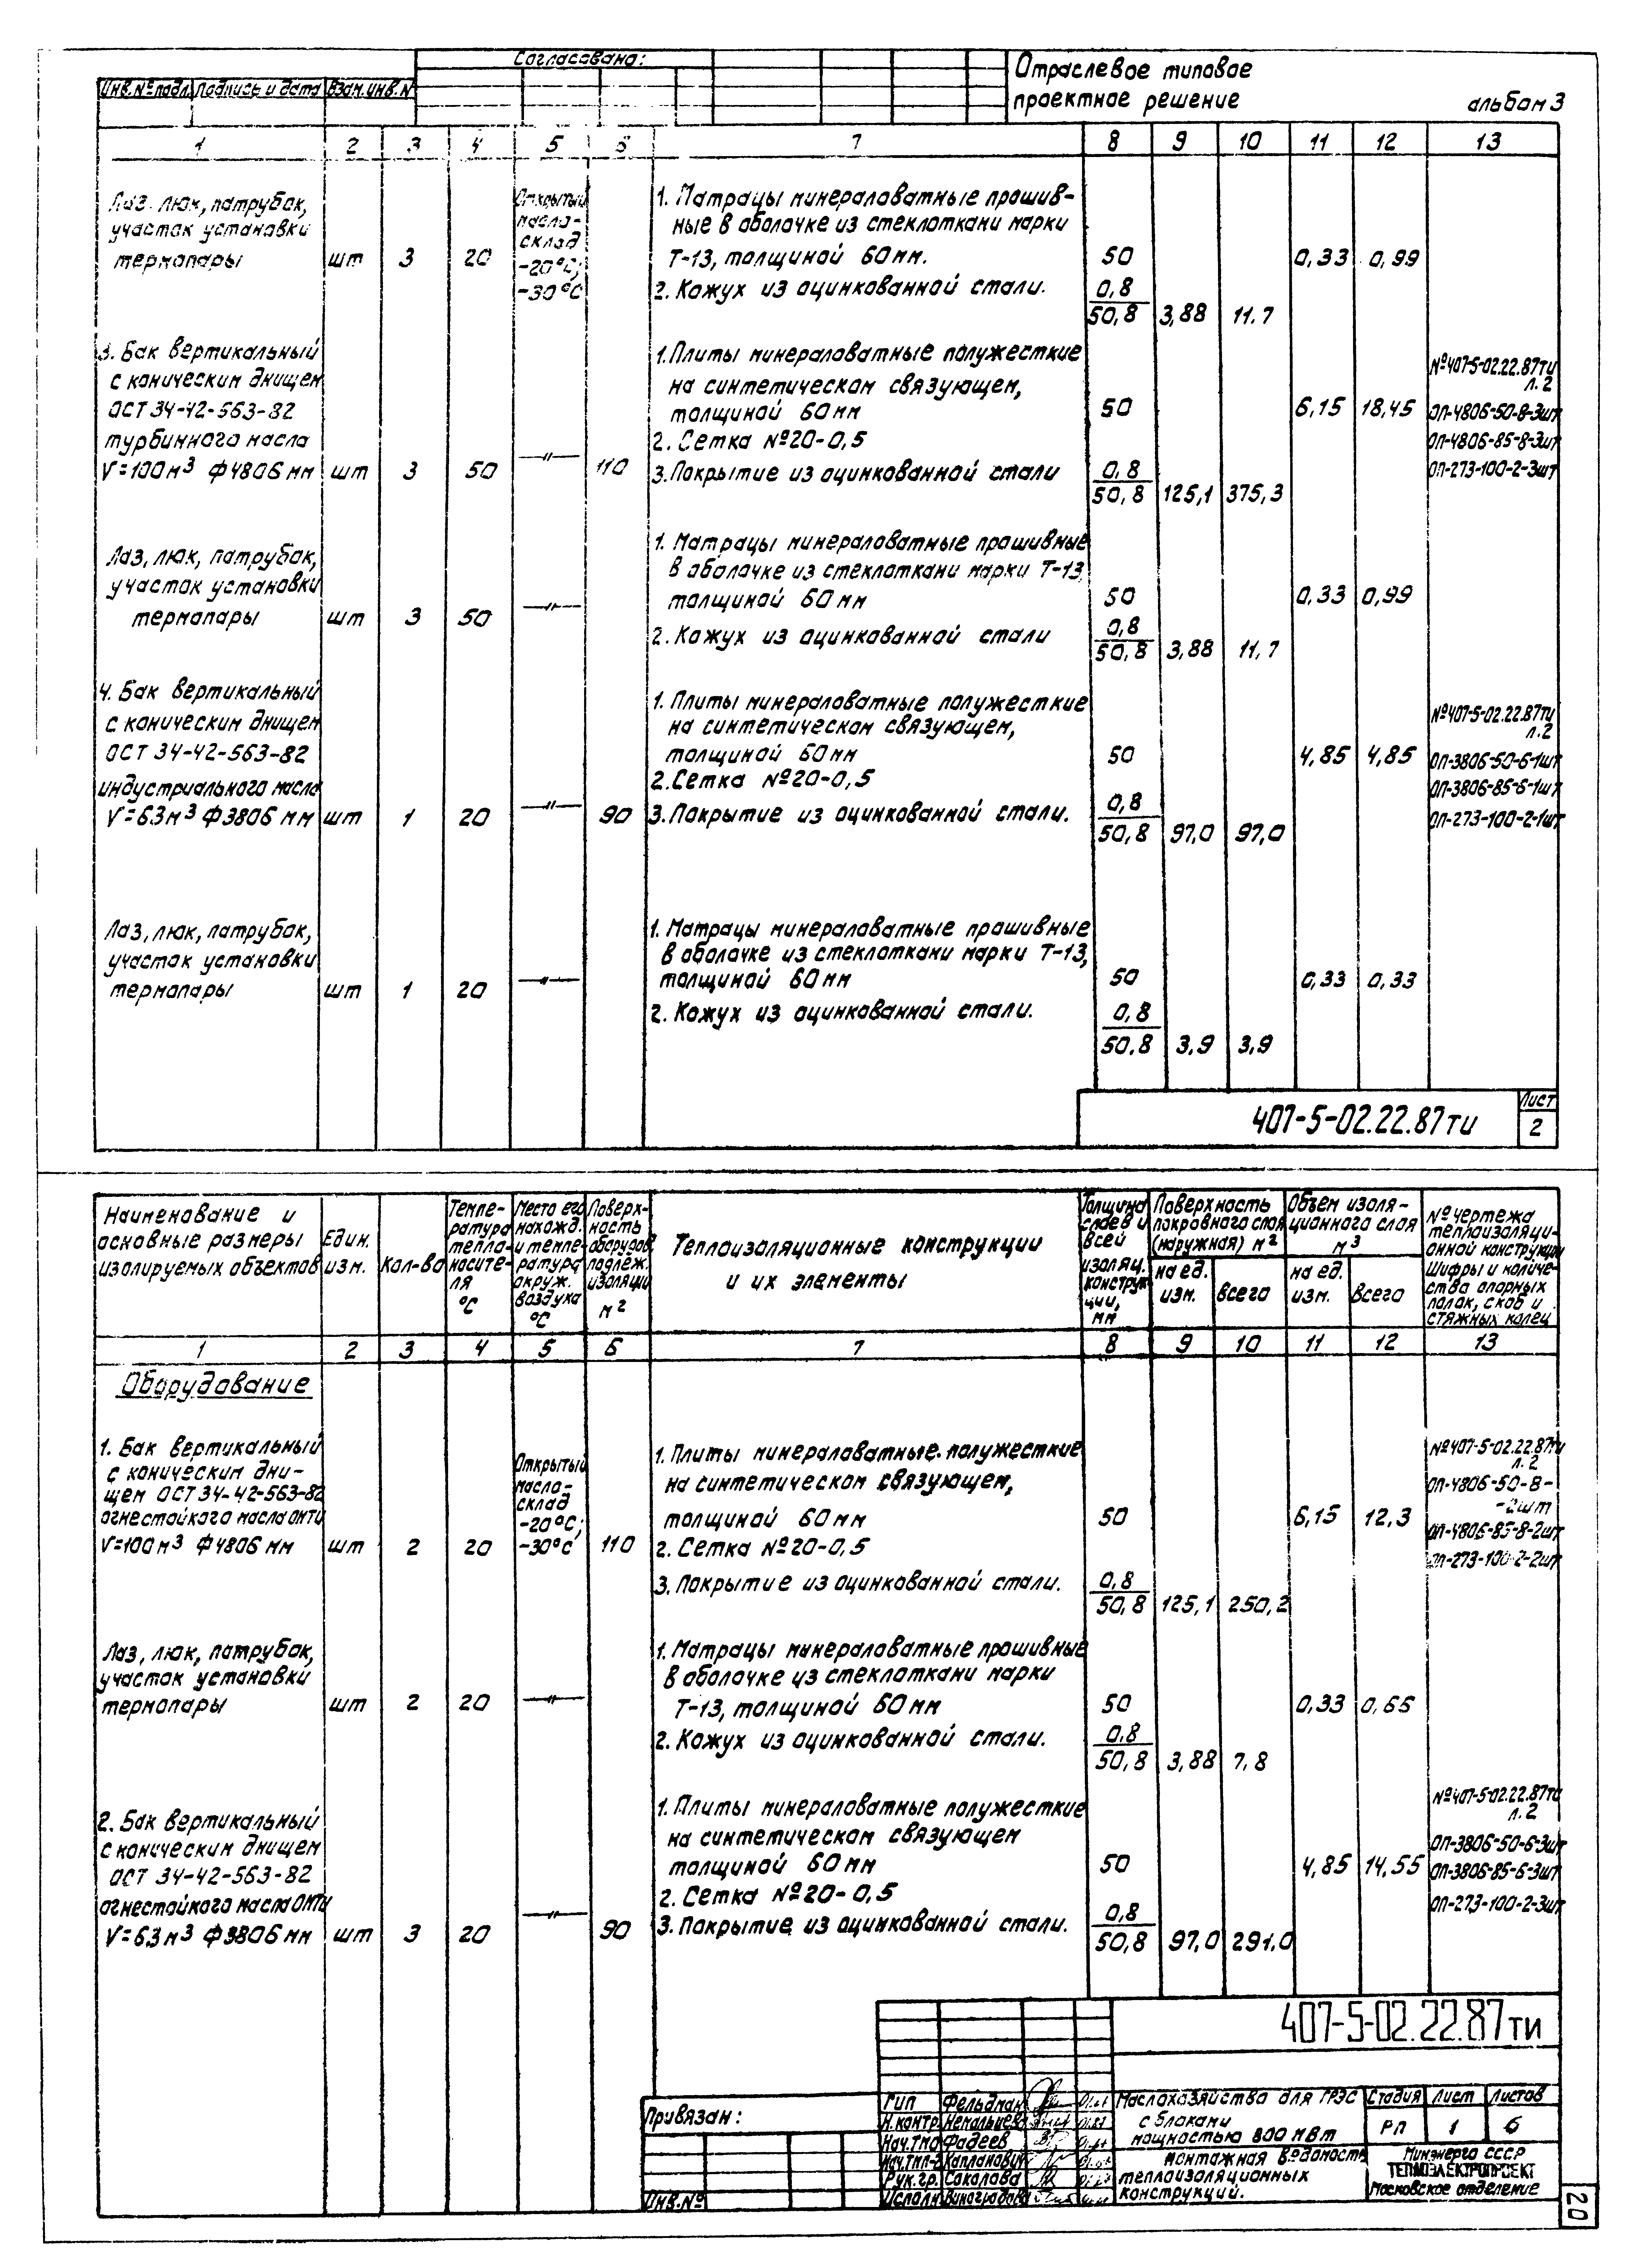 Согласовано:
Инв.№подл. Подпись и дата Взам.инв.№
Отраслевое типовое
проектное решение
альбом 3
1 2 3 4 5 6 7 8 9 10 11 12 13
Лаз, люк, патрубок,
участок установки
термопары шт 3 20
Открытый
масло-
склад
-20°С;
-30°С
1. Матрацы минераловатные прошив-
ные в оболочке из стеклоткани марки
Т-13, толщиной 60 мм. 50 0,33 0,99
2. Кожух из оцинкованной стали. 0,8
50,8 3,88 11.7
3. Бак вертикальный
с коническим днищем
ОСТ 34-42-563-82
турбинного масла
V=100 м³ ф4806 мм шт 3 50 —"— 110
1. Плиты минераловатные полужесткие
на синтетическом связующем,
толщиной 60 мм 50 6,15 18,45
2. Сетка №20-0,5
3. Покрытие из оцинкованной стали 0,8
50,8 125,1 375,3
№407-5-02.22.87ти
л.2
ОП-4806-50-8-3шт
ОП-4806-85-8-3шт
ОП-273-100-2-3шт
Лаз, люк, патрубок,
участок установки
термопары шт 3 50 —"—
1. Матрацы минераловатные прошивные
в оболочке из стеклоткани марки Т-13,
толщиной 60 мм 50 0,33 0,99
2. Кожух из оцинкованной стали 0,8
50,8 3,88 11,7
4. Бак вертикальный
с коническим днищем
ОСТ 34-42-563-82
индустриального масла
V=63 м³ ф3806 мм шт 1 20 —"— 90
1. Плиты минераловатные полужесткие
на синтетическом связующем,
толщиной 60 мм 50 4,85 4,85
2. Сетка №20-0,5
3. Покрытие из оцинкованной стали. 0,8
50,8 97,0 97,0
№407-5-02.22.87ти
л.2
ОП-3806-50-6-1шт
ОП-3806-85-6-1шт
ОП-273-100-2-1шт
Лаз, люк, патрубок,
участок установки
термопары шт 1 20 —"—
1. Матрацы минераловатные прошивные
в оболочке из стеклоткани марки Т-13,
толщиной 60 мм 50 0,33 0,33
2. Кожух из оцинкованной стали. 0,8
50,8 3,9 3,9
407-5-02.22.87ти
Лист
2
Наименование и
основные размеры
изолируемых объектов
Един.
изм.
Кол-во
Темпе-
ратура
тепло-
носите-
ля
°С
Место его
нахожд.
и темпе-
ратура
окруж.
воздуха
°С
Поверх-
ность
оборудов.
подлеж.
изоляции
м²
Теплоизоляционные конструкции
и их элементы
Толщина
слоев и
всей
изоляц.
конструк
ции,
мм
Поверхность
покровного слоя
(наружная) м²
на ед.
изм.
всего
Объем изоля-
ционного слоя
м³
на ед.
изм.
всего
№ чертежа
теплоизоляци-
онной конструкции
Шифры и количе-
ства опорных
полок, скоб и
стяжных колец
1 2 3 4 5 6 7 8 9 10 11 12 13
Оборудование
1. Бак вертикальный
с коническим дни-
щем ОСТ 34-42-563-82
огнестойкого масла ОМТИ
V=100 м³ ф4806 мм шт 2 20
Открытый
масло-
склад
-20°С;
-30°С 110
1. Плиты минераловатные полужесткие
на синтетическом связующем,
толщиной 60 мм 50 6,15 12,3
2. Сетка №20-0,5
3. Покрытие из оцинкованной стали. 0,8
50,8 125,1 250,2
№407-5-02.22.87ти
л.2
ОП-4806-50-8-
-2шт
ОП-4806-85-8-2шт
ОП-273-100-2-2шт
Лаз, люк, патрубок,
участок установки
термопары шт 2 20 —"—
1. Матрацы минераловатные прошивные
в оболочке из стеклоткани марки
Т-13, толщиной 60 мм 50 0,33 0,66
2. Кожух из оцинкованной стали. 0,8
50,8 3,88 7,8
2. Бак вертикальный
с коническим днищем
ОСТ 34-42-563-82
огнестойкого масла ОМТИ
V=63 м³ ф3806 мм шт 3 20 —"— 90
1. Плиты минераловатные полужесткие
на синтетическом связующем
толщиной 60 мм 50 4,85 14,55
2. Сетка №20-0,5
3. Покрытие из оцинкованной стали. 0,8
50,8 97,0 291,0
№407-5-02.22.87ти
л.2
ОП-3806-50-6-3шт
ОП-3806-85-6-3шт
ОП-273-100-2-3шт
407-5-02.22.87ти
Привязан:
Инв.№
ГИП Фельдман
Н.контр
Нач.тмо Фадеев
Нач.тмп-2 Капланович
Рук.гр. Соколова
Исполн. Виноградова
Маслохозяйства для ГРЭС
с блоками
мощностью 800 мВт
монтажная ведомость
теплоизоляционных
конструкций.
Стадия Лист Листов
РП 1 6
Минэнерго СССР
ТЕПЛОЭЛЕКТРОПРОЕКТ
Московское отделение
20